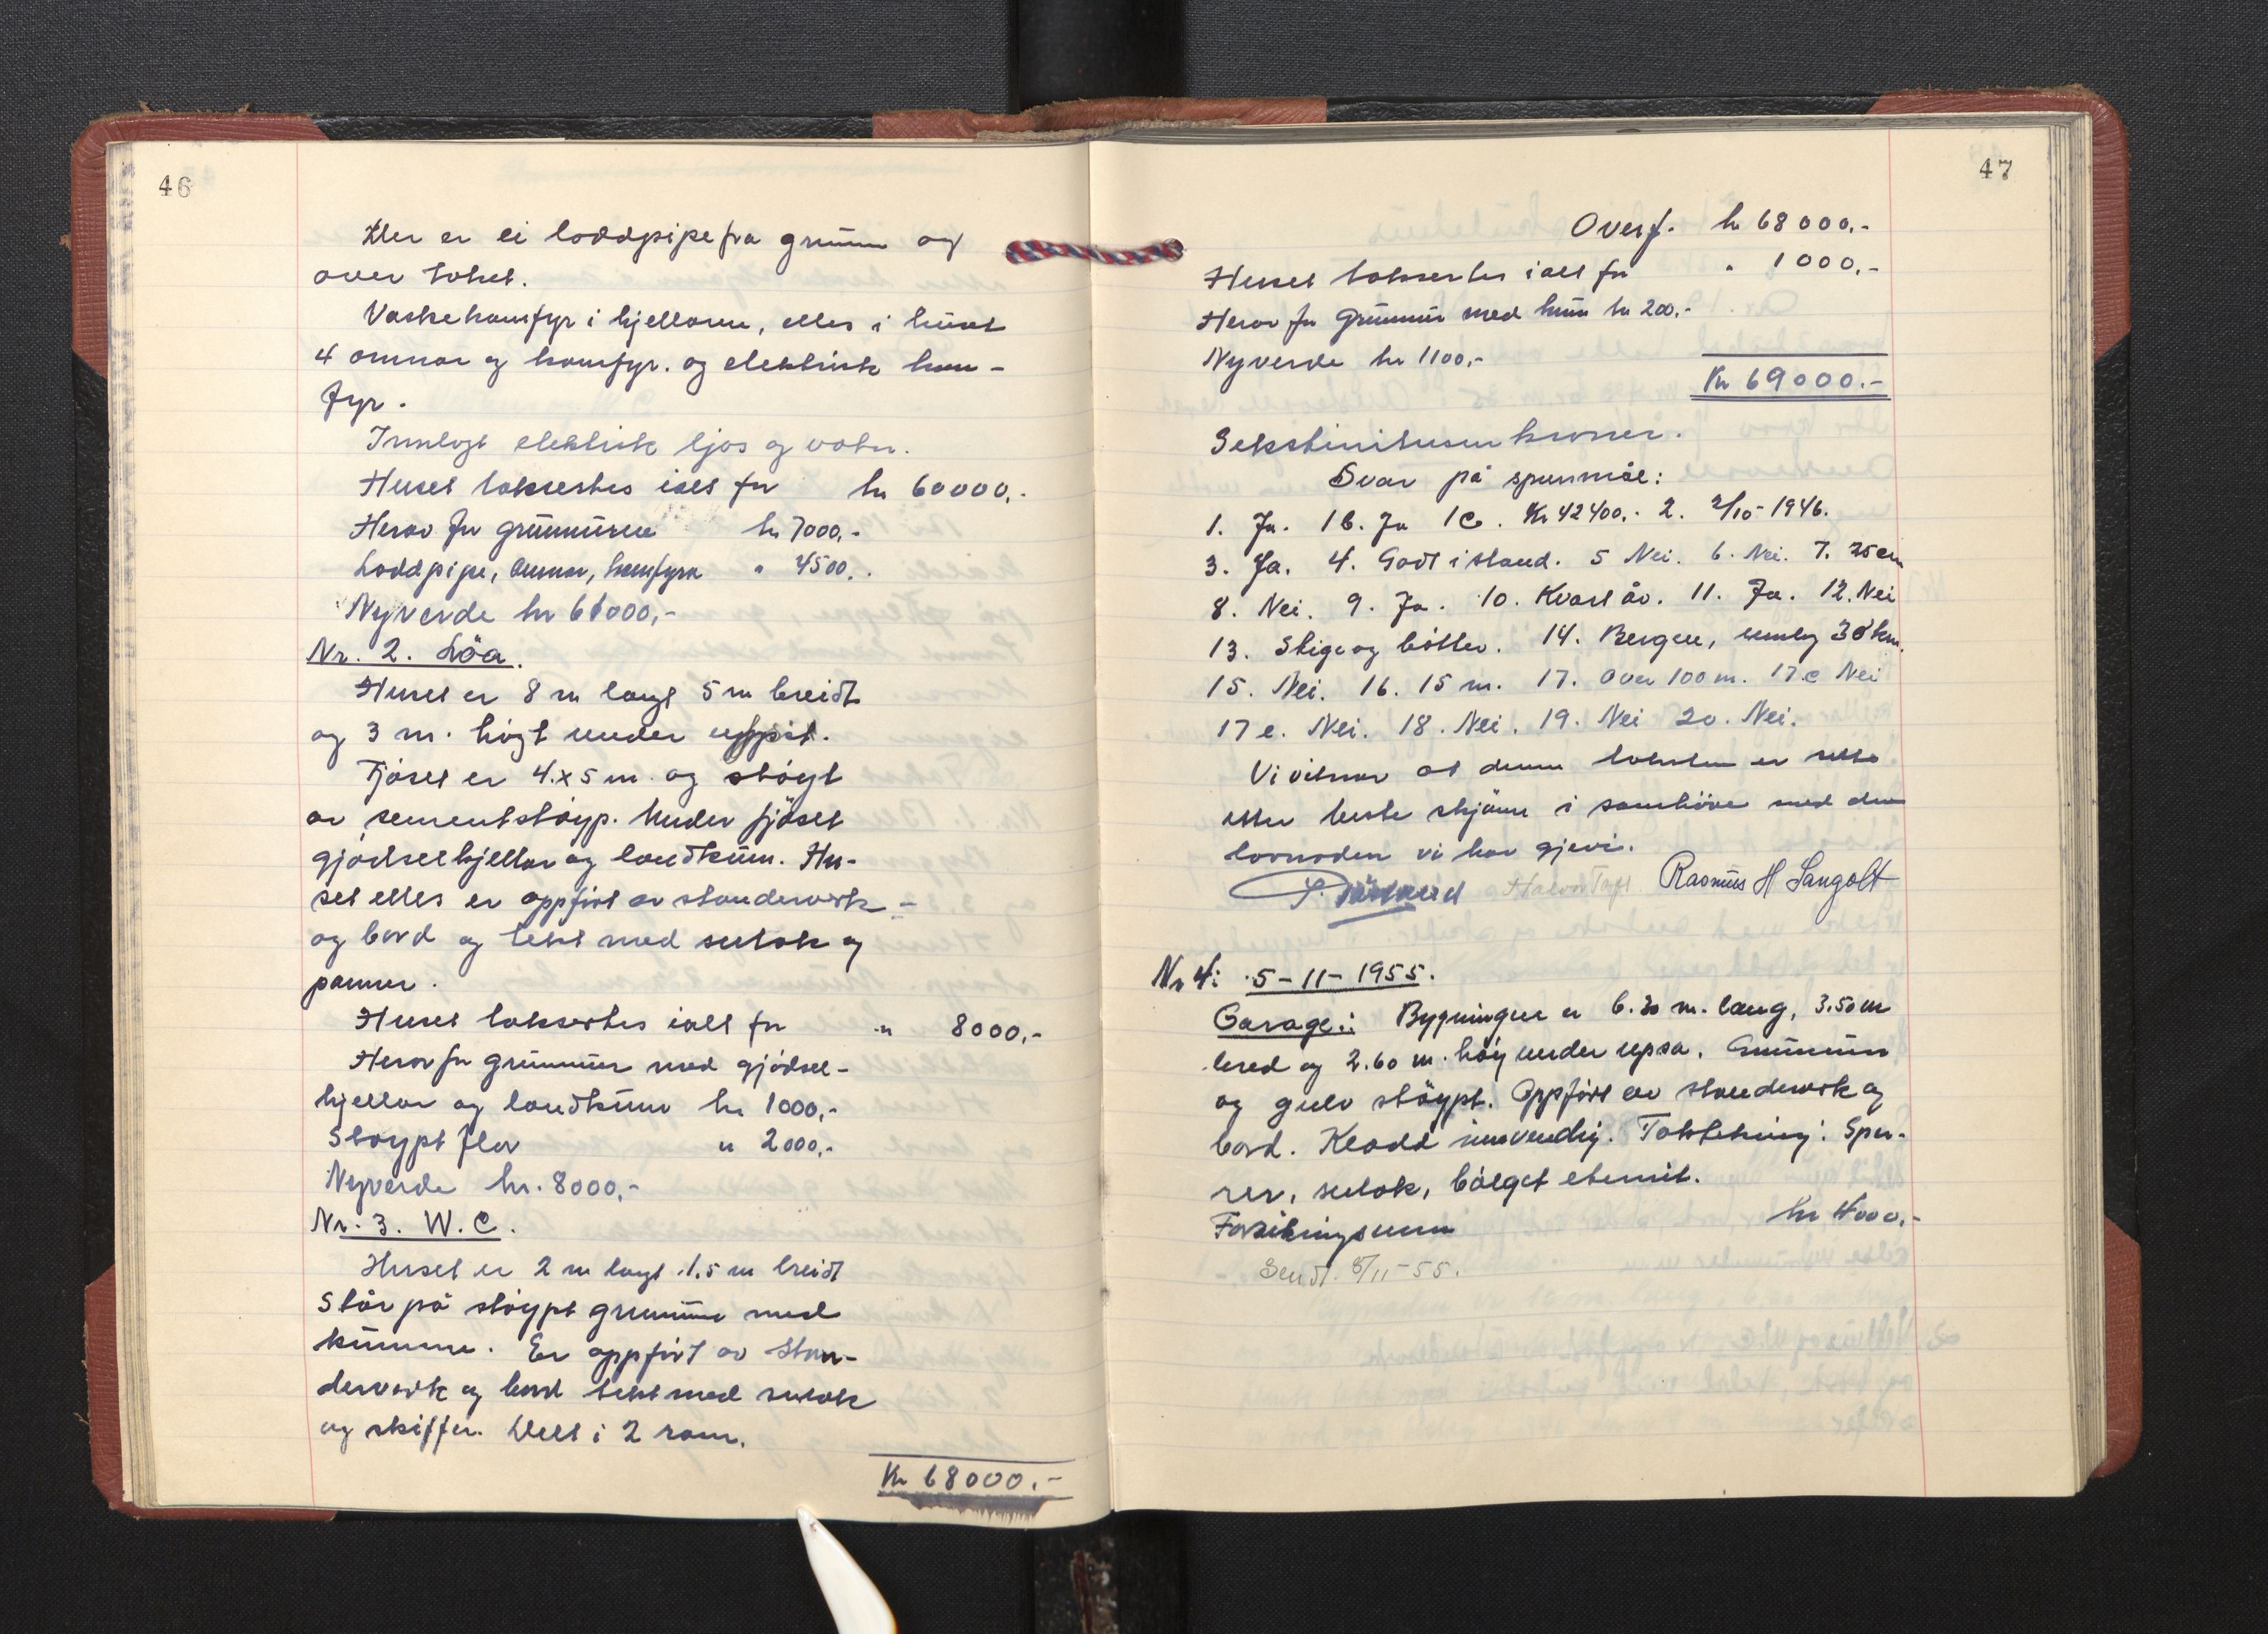 46
Der er ei loddpipe fra grunn og
over taket.
Vaskekomfyr i kjellaren, elles i huset
4 omnar og komfyr. og elektrisk kom-
fyr.
Innlagt elektrisk ljos og vatn.
Huset taksertes ialt for kr 60000,-
Herav for grunnmuren kr 7000,-
Loddpipe, omnar, komfyra " 4500,-
Nyverde kr 61000,-
Nr. 2. Löa.
Huset er 8 m langt 5 m breidt
og 3 m. högt under
Fjöset er 4 x 5 m og stöypt
av sementstöyp. Under fjöset
gjödselkjellar og landkum. Hu-
set elles er oppfört av standerverk-
og bord og tekt med sutak og
panner.
Huset taksertes ialt for " 8000,-
Herav for grunnmur med gjödsel-
kjellar og landkum kr 1000,-
Stöypt flor " 2000,-
Nyverde kr. 8000,-
Nr. 3. W.C.
Huset er 2 m langt 1.5 m breidt
Står på stöypt grunnmur med
kumme. Er oppfört av stan-
derverk og bord tekt med sutak
og skiffer. Delt i 2 rom.
Kr 68000.-
47
Overf. kr 68000,-
Huset taksertes ialt for " 1000,-
Herav for grunnmur med kum kr 200,-
Nyverde kr 1100,-
Kr 69000.-
Sekstinitusen kroner.
Svar på spursmål:
1. Ja. 1b. Ja 1c. Kr 42400,- 2. 2/10-1946.
3. Ja. 4. Godt i stand. 5 Nei. 6. Nei. 7. 25 cm
8. Nei. 9. Ja. 10. Kvart år. 11. Ja. 12. Nei
13. Stige og bötter. 14. Bergen, umlag 30 km.
15. Nei. 16. 15 m. 17. Over 100 m. 17c Nei
17 e. Nei. 18. Nei. 19. Nei 20. Nei.
Vi vitnar at denne taksten er sett
etter beste skjönn i samhöve med den
lovnaden vi har gjevi.
Rasmus H Langolt
Nr 4: 5-11-1955.
Garage: Bygningen er 6.30 m. lang, 3.50 m
bred og 2.60 m. höy under upsa. Grunnmur
og gulv stöypt. Oppfört av standerverk og
bord. Kledd innvendig. Taktekning: Sper-
rer, sutak, bölget eternit.
Forsikringsum kr 4000,-
Sendt. 8/11-55.